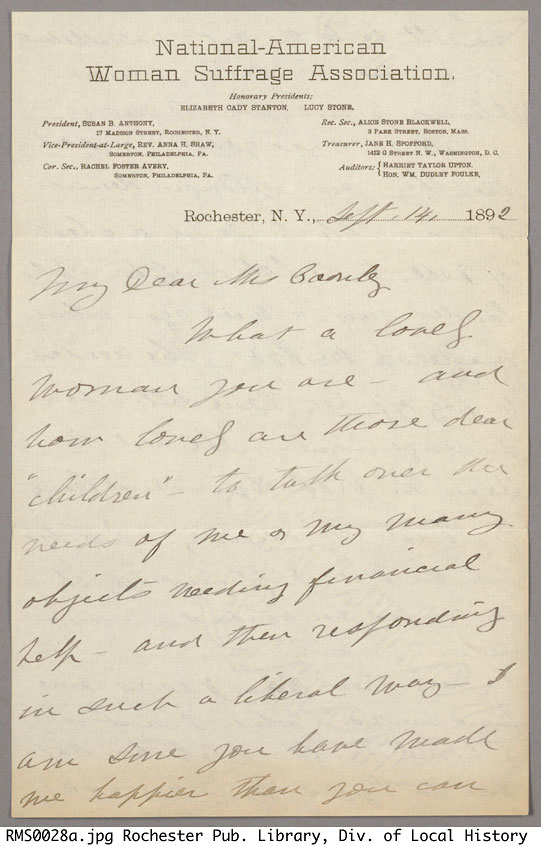 National-American
Woman Suffrage Association.
Honorary Presidents:
ELIZABETH CADY STANTON, LUCY STONE.
President, SUSAN B. ANTHONY,
17 MADISON STREET, ROCHESTER, N. Y.
Vice-President-at-Large, REV. ANNA H. SHAW,
SOMERTON, PHILADELPHIA, PA.
Cor. Sec., RACHEL FOSTER AVERY,
SOMERTON, PHILADELPHIA, PA.
Rec. Sec., ALICE STONE BLACKWELL,
3 PARK STREET, BOSTON, MASS.
Treasurer, JANE H. SPOFFORD,
1412 G STREET N. W., WASHINGTON, D. C.
Auditors: { HARRIET TAYLOR UPTON.
HON. WM. DUDLEY FOULKE.
Rochester, N. Y., Sept. 14, 1892
My Dear Mrs
What a lovely
woman you are - and
how lovely are those dear
"children" - to talk over the
needs of me & my many
objects needing financial
help - and then responding
in such a liberal way - I
am sure you have made
me happier than you can
RMS0028a.jpg Rochester Pub. Library, Div. of Local History